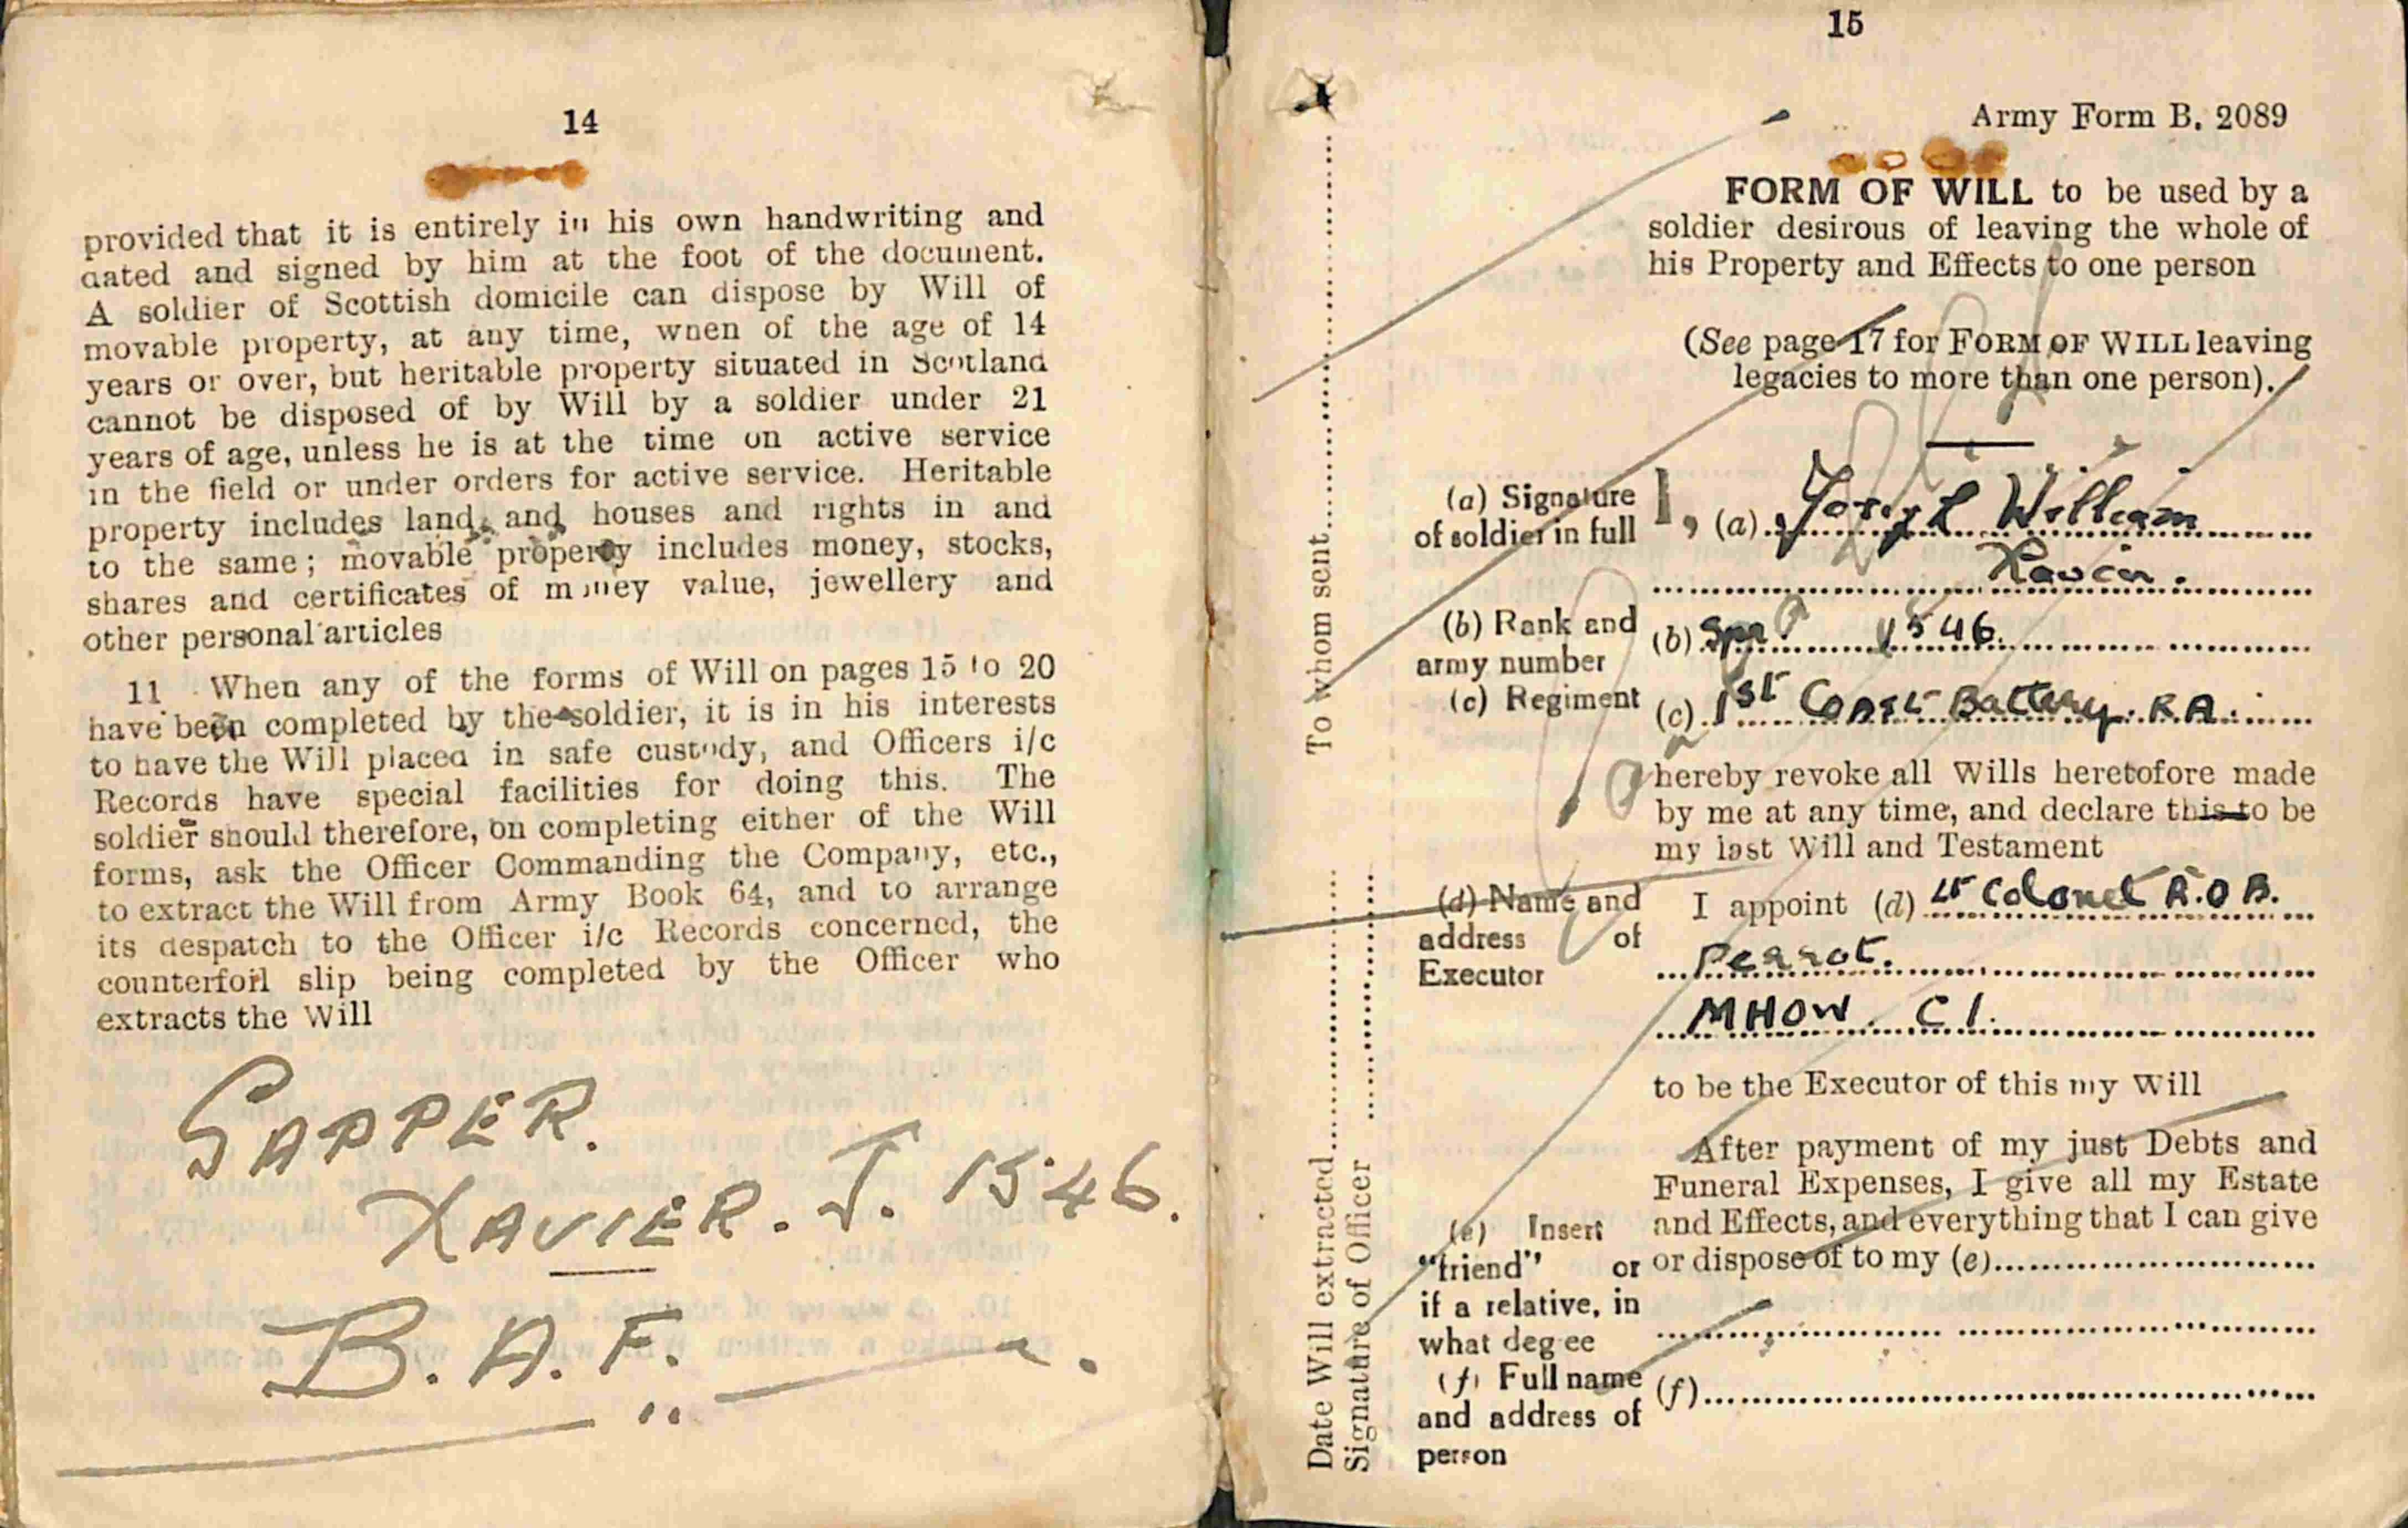 14
provided that it is entirely in his own handwriting and
dated and signed by him at the foot of the document.
A soldier of Scottish domicile can dispose by Will of
movable property, at any time, when of the age of 14
years or over, but heritable property situated in Scotland
cannot be disposed of by Will by a soldier under 21
years of age, unless he is at the time on active service
in the field or under orders for active service. Heritable
property includes land, and houses and rights in and
to the same; movable property includes money, stocks,
shares and certificates of money value, jewellery and
other personal articles
11. When any of the forms of Will on pages 15 to 20
have been completed by the soldier, it is in his interests
to have the Will placed in safe custody, and Officers i/c
Records have special facilities for doing this. The
soldier should therefore, on completing either of the Will
forms, ask the Officer Commanding the Company, etc.,
to extract the Will from Army Book 64, and to arrange
its despatch to the Officer i/c Records concerned, the
counterfoil slip being completed by the Officer who
extracts the Will
SAPPER.
XAVIER. J. 1546.
B.A.F.
15
Army Form B. 2089
FORM OF WILL to be used by a
soldier desirous of leaving the whole of
his Property and Effects to one person
(See page 17 for FORM OF WILL leaving
legacies to more than one person).
(a) Signature
of soldier in full
I, (a) Joseph William
Xavier.
(b) Rank and
army number
(b) Spr. 1546.
(c) Regiment
(c) 1st Coast Battery. R.A.
hereby revoke all Wills heretofore made
by me at any time, and declare this to be
my last Will and Testament
(d) Name and
address of
Executor
I appoint (d) Lt Colonel R.O.B.
Perrot.
MHOW. C I.
to be the Executor of this my Will
After payment of my just Debts and
Funeral Expenses, I give all my Estate
and Effects, and everything that I can give
or dispose of to my (e)
(e) Insert
"friend" or
if a relative, in
what degree
(f) Full name
and address of
person
(f)
To whom sent
Date Will extracted
Signature of Officer